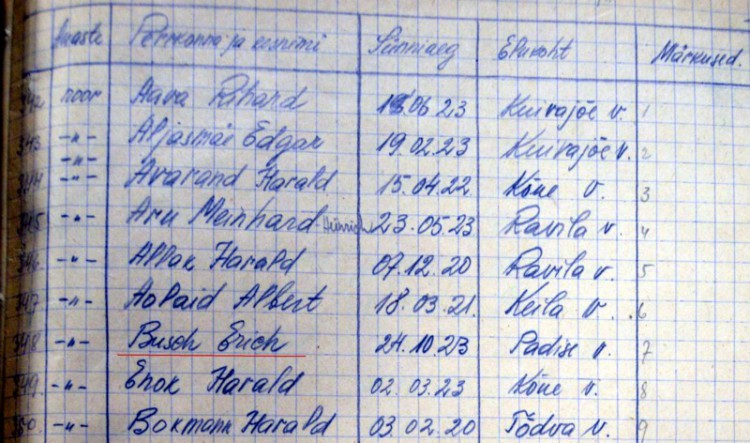 Aaste Perekonna ja eesnimi Sünniaeg Elukoht Märkused.
342 noor Aava Rihard 18.06 23 Kuivajõe v. 1
343 -"- Aljasmäe Edgar 19.02.23 Kuivajõe v. 2
-"-
344 -"- Avarand Harald 15.04.22 Kõue v. 3
345 -"- Aru Meinhard-Hinrich 23.05 23 Ravila v. 4
346 -"- Allak Harald 07.12.20 Ravila v. 5
347 -"- Aolaid Albert 18.03.21. Keila v. 6
348 -"- Busch Erich 24.10 23 Padise v. 7
349. -"- Enok Harald 02.03.23 Kõue v. 8
350. -"- Bokmann Harald 03.02.20 Tõdva v. 9